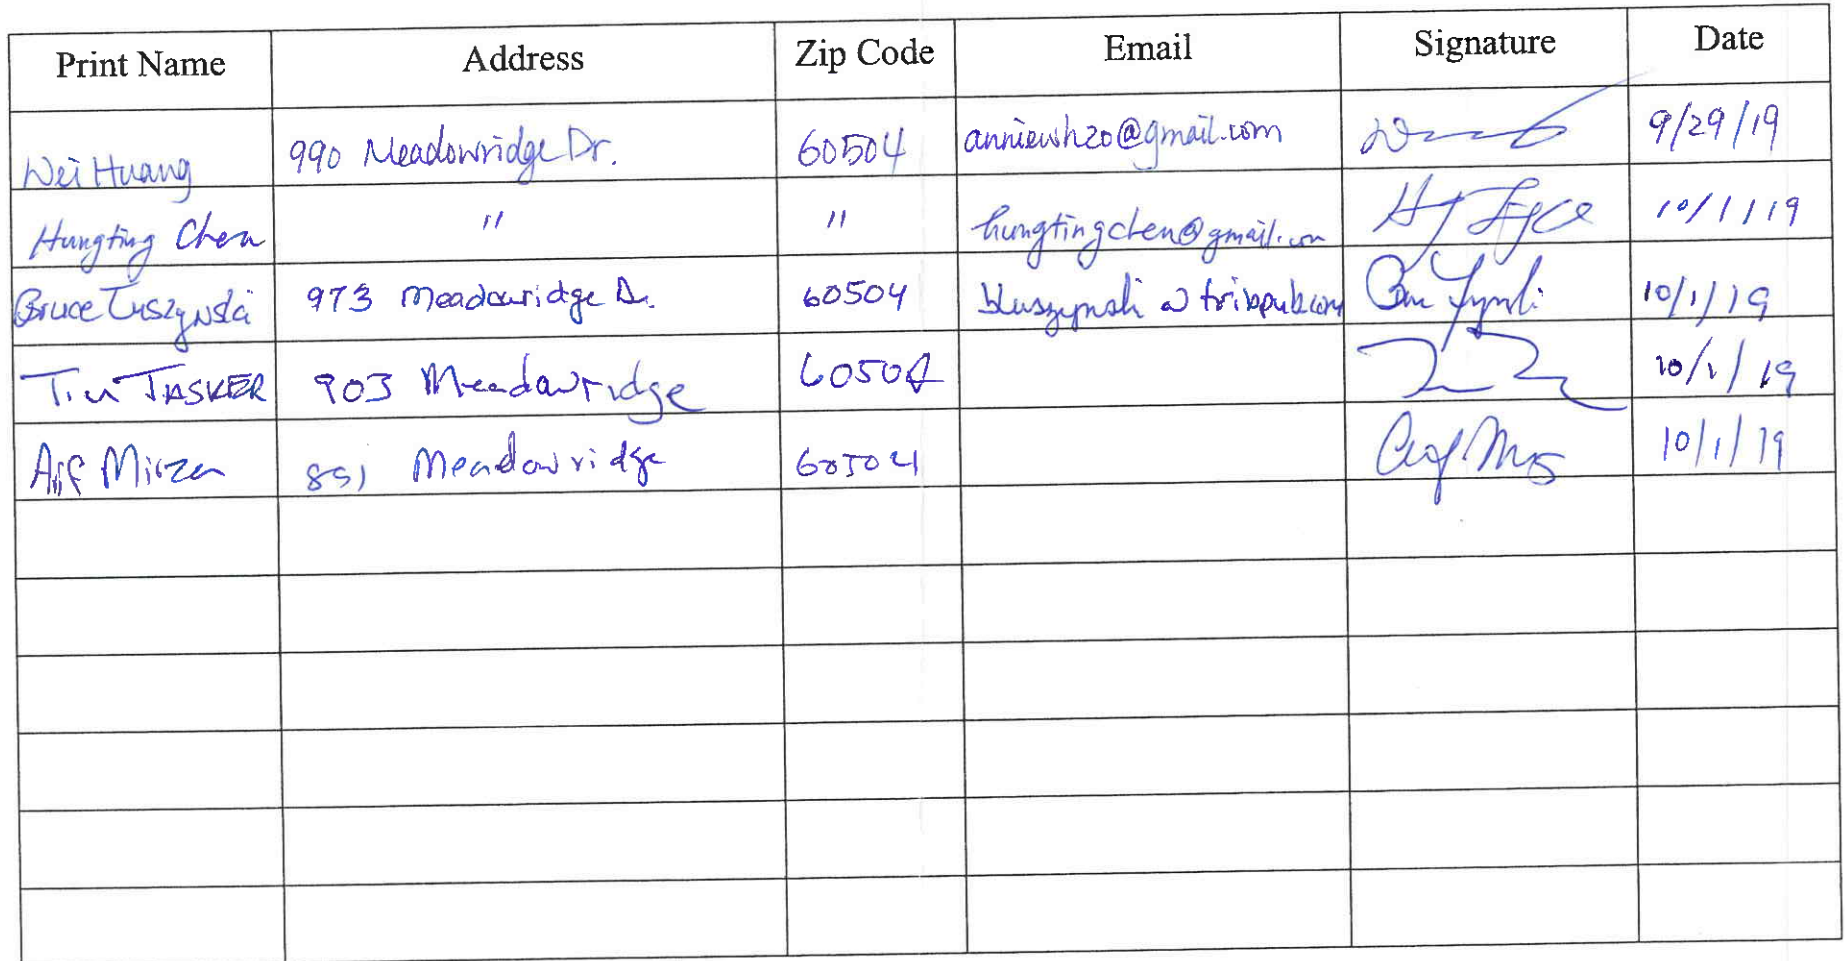 Print Name Address Zip Code Email Signature Date
Wei Huang 990 Meadowridge Dr. 60504 anniewh20@gmail.com 9/29/19
Hungting Chen " " hungtingchen@gmail.com 10/1/19
Bruce Tuszynski 973 Meadowridge Dr. 60504 10/1/19
Tim TASKER 903 Meadowridge 60504 10/1/19
Arif Mirza 851 Meadowridge 60504 10/1/19